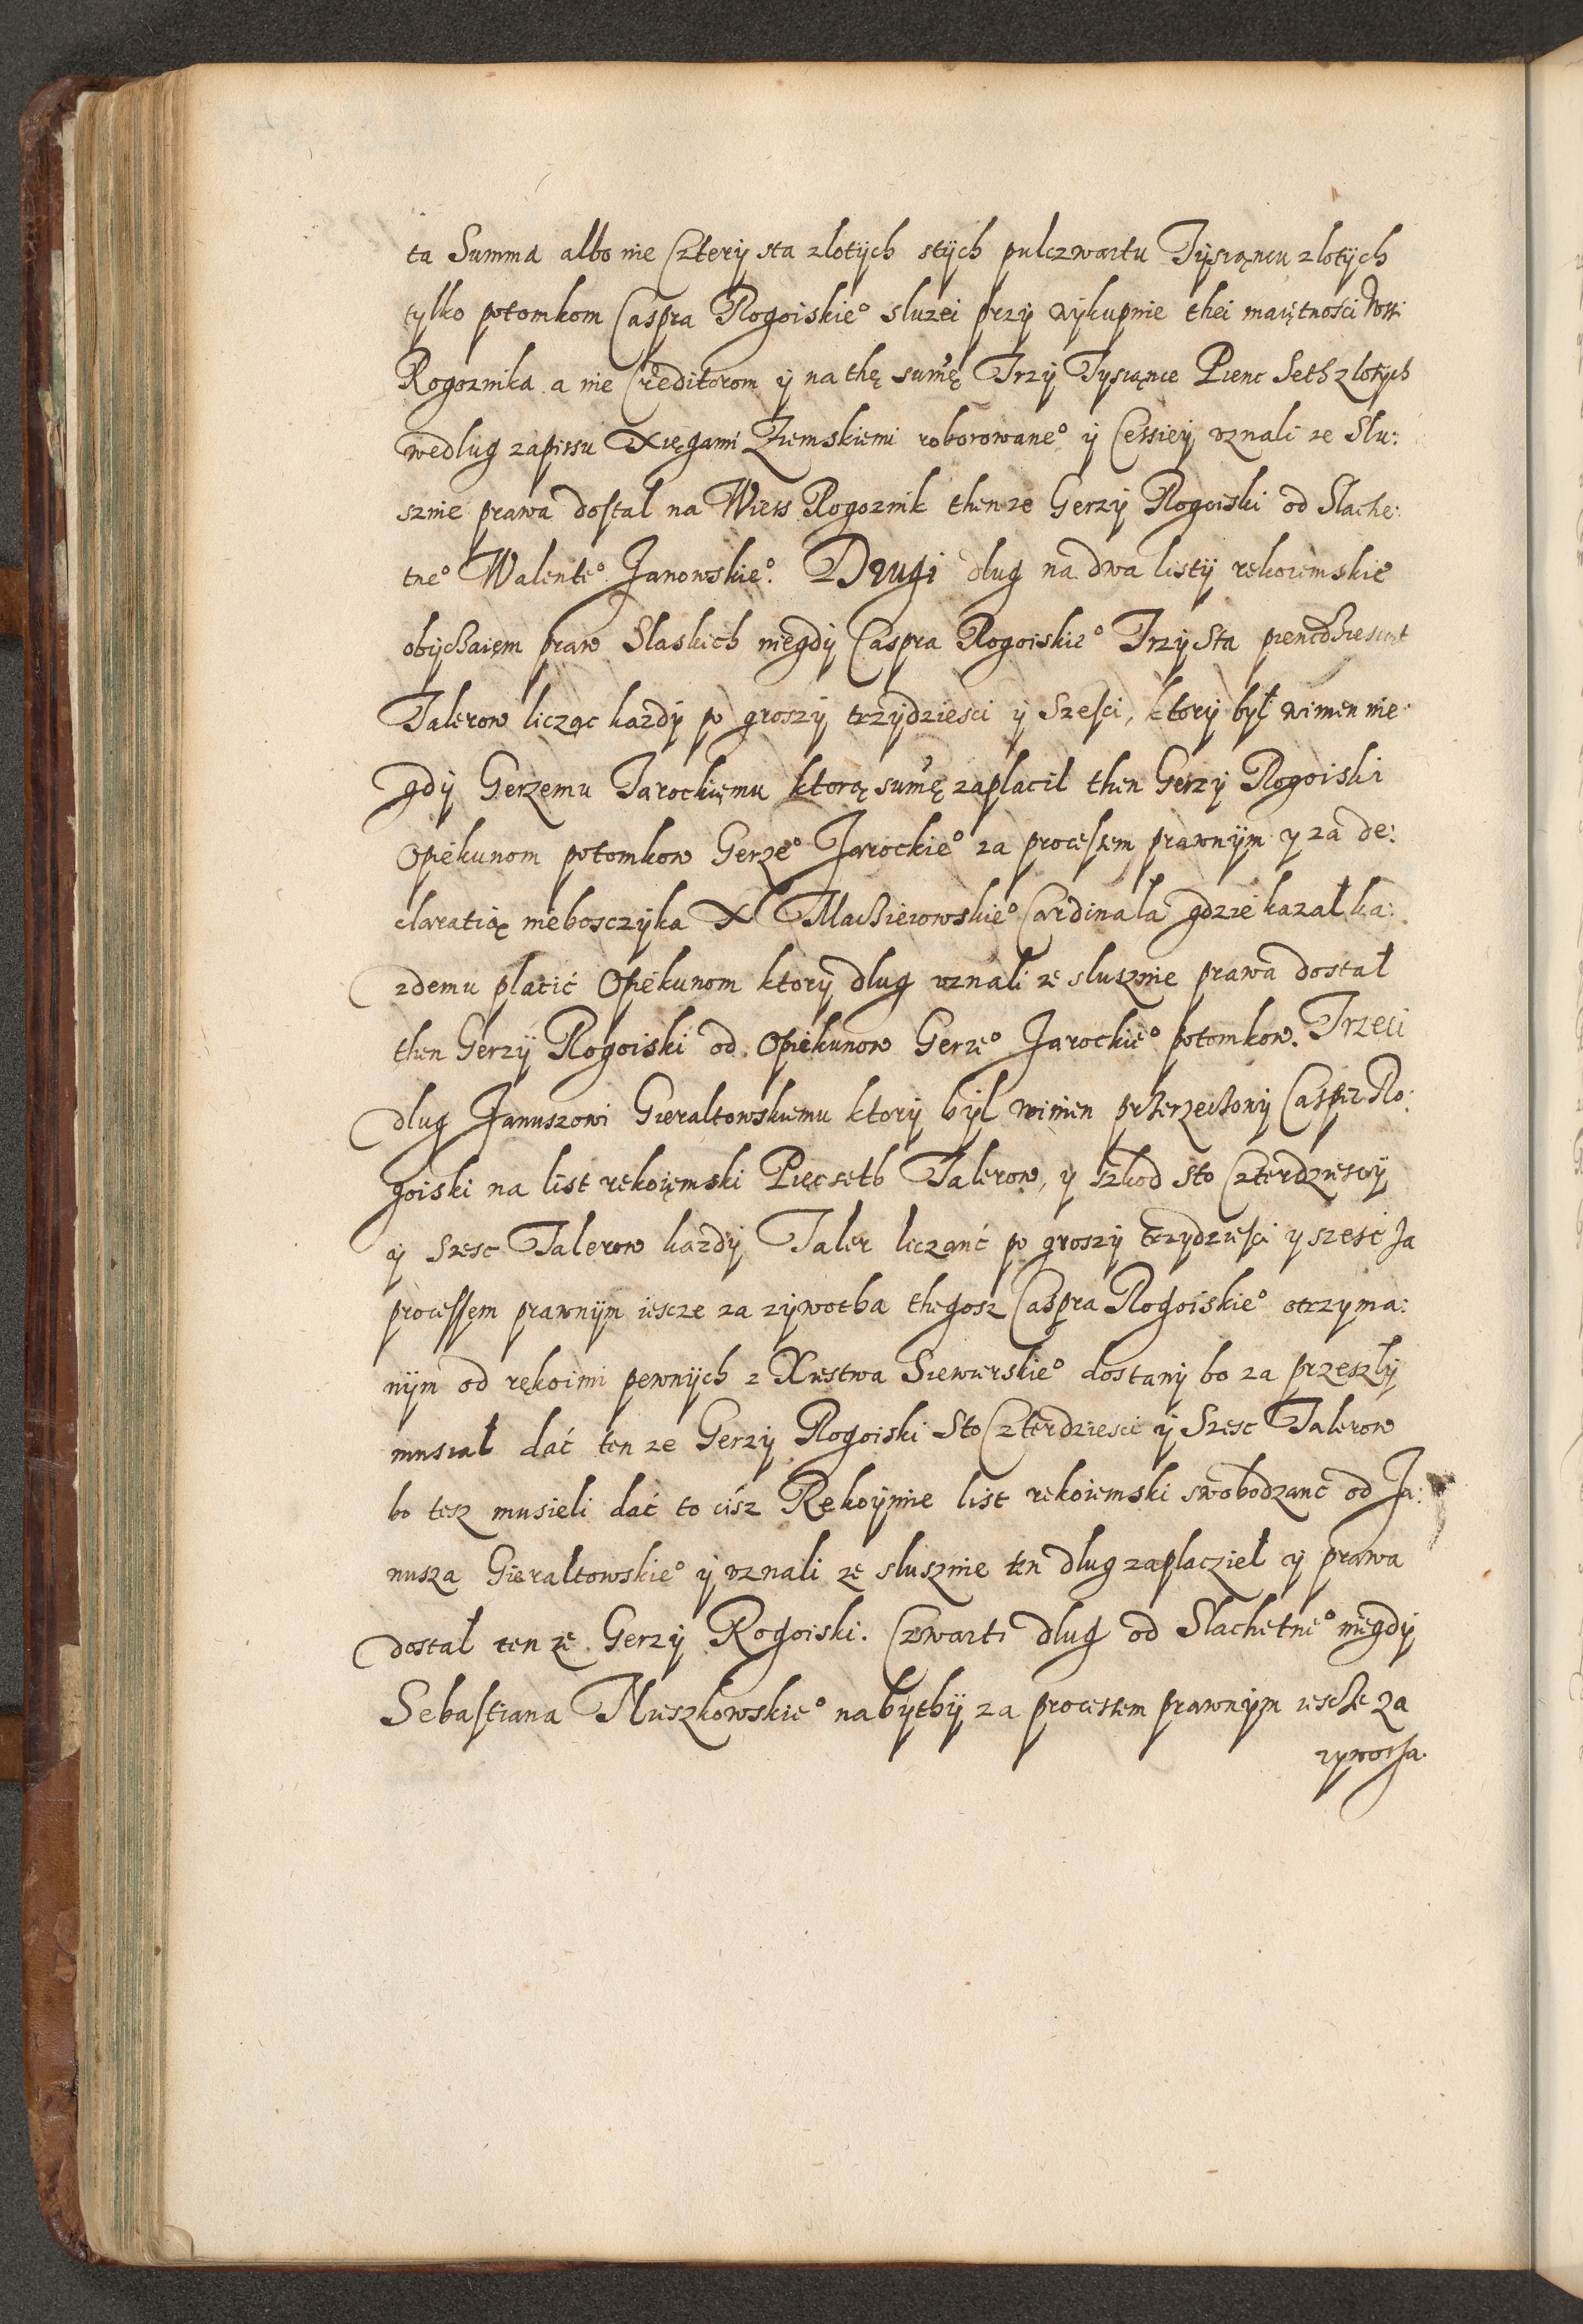 ta Summa albo nie Cztery sta zlotych stÿch pulczwartu Tysiąncu zlotych
tylko potomkom Caspra Rogoiskie° sluzei przy wykupnie thei maiętnosci wsi
Rogoznika a nie Creditorom ÿ na thę sumę Trzy Tysiąnce Pienc Seth zlotych
wedlug zapissu Xięgami Ziemskiemi roborowane° ÿ Cessiey uznali ze Slu:
sznie prawa dostal na Wiess Rogoznik then ze Gerzÿ Rogoiski od Slache:
tne° Walente° Janowskie°. Drugi dlug na dwa listÿ rekoiemskie
obyczaiem praw Slaskich niegdÿ Caspra Rogoiskie° Trzy Sta piencdziesiąt
Talerow licząc kazdÿ po groszÿ trzydziesci ÿ Szesci, ktorÿ był winien nie
gdÿ Gerzemu Jarockiemu ktorą sumę zaplacil then Gerzÿ Rogoiski
Opiekunom potomkow Gerze° Jarockie° za processem prawnÿm y za de:
claratią niebosczyka X Maciieiowskie° Cardinala gdzie kazał ka:
zdemu placić Opiekunom ktorÿ dlug uznali ze slusznie prawa dostał
then Gerzÿ Rogoiski od Opiekunow Gerze° Jarockie° potomkow. Trzeci
dlug Januszowi Gieraltowskiemu ktorÿ bÿl winien przerzeczonÿ Casper Ro:
goiski na list rekoięmski Pięcseth Talerow, y szkod sto Czterdziescÿ
ÿ Szesc Talerow kazdÿ Taler liczanć po groszÿ trzydziesci y szesć za
processem prawnÿm iescze za zÿwotha thegosz Caspra Rogoiskie° otrzyma:
nÿm od rękoimi pewnÿch z Xiestwa Siewierskie° dostanÿ bo za przeszlÿ
musiał dać ten ze Gerzÿ Rogoiski Sto Czterdziesci ÿ Szesc Talerow
bo tesz musieli dać to cisz Rękoÿmie list rekoiemski swobodzanc od Ja:
nusza Gieraltowskie° ÿ uznali ze slusznie ten dlug zaplacziel ÿ prawa
dostal ten ze Gerzÿ Rogoiski. Czwarti dlug od Slachetne° niegdÿ
Sebastiana Mieszkowskie° nabÿthÿ za processem prawnÿm iescze za
zywotha.